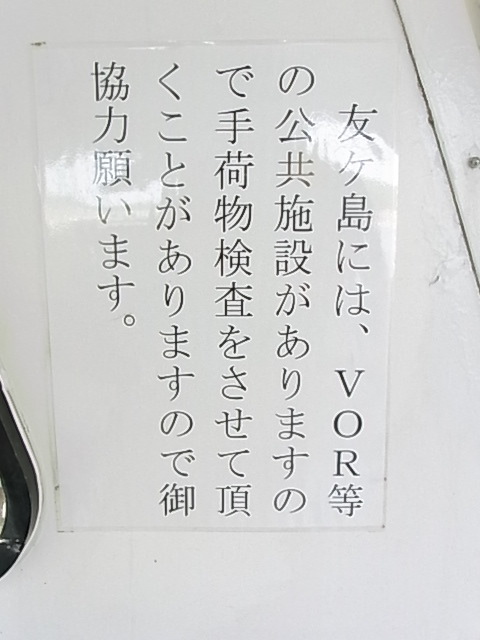 友ケ島には、VOR等
の公共施設がありますの
で手荷物検査をさせて頂
くことがありますので御
協力願います。